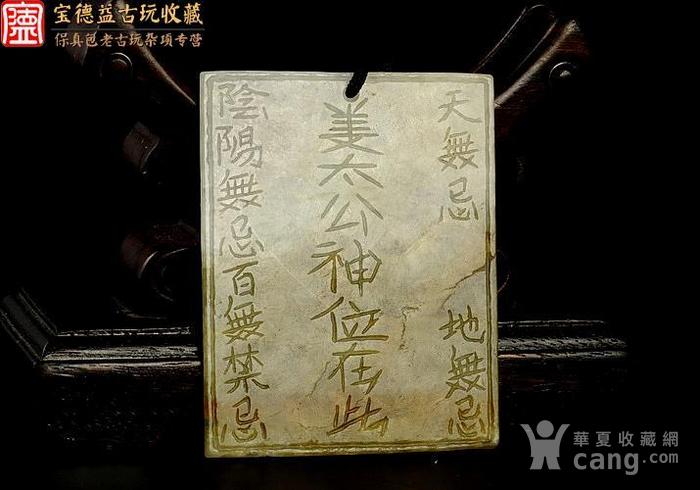 宝德益古玩收藏
保真包老古玩杂项专营
天無忌 地無忌
姜太公神位在此
陰陽無忌百無禁忌
華夏收藏網
cang.com